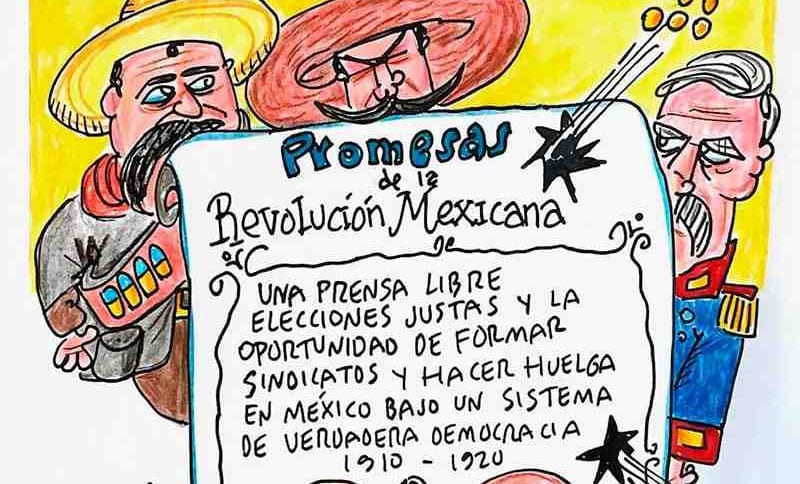 Promesas
de la
Revolución Mexicana
UNA PRENSA LIBRE
ELECCIONES JUSTAS Y LA
OPORTUNIDAD DE FORMAR
SINDICATOS Y HACER HUELGA
EN MÉXICO BAJO UN SISTEMA
DE VERDADERA DEMOCRACIA
1910 - 1920